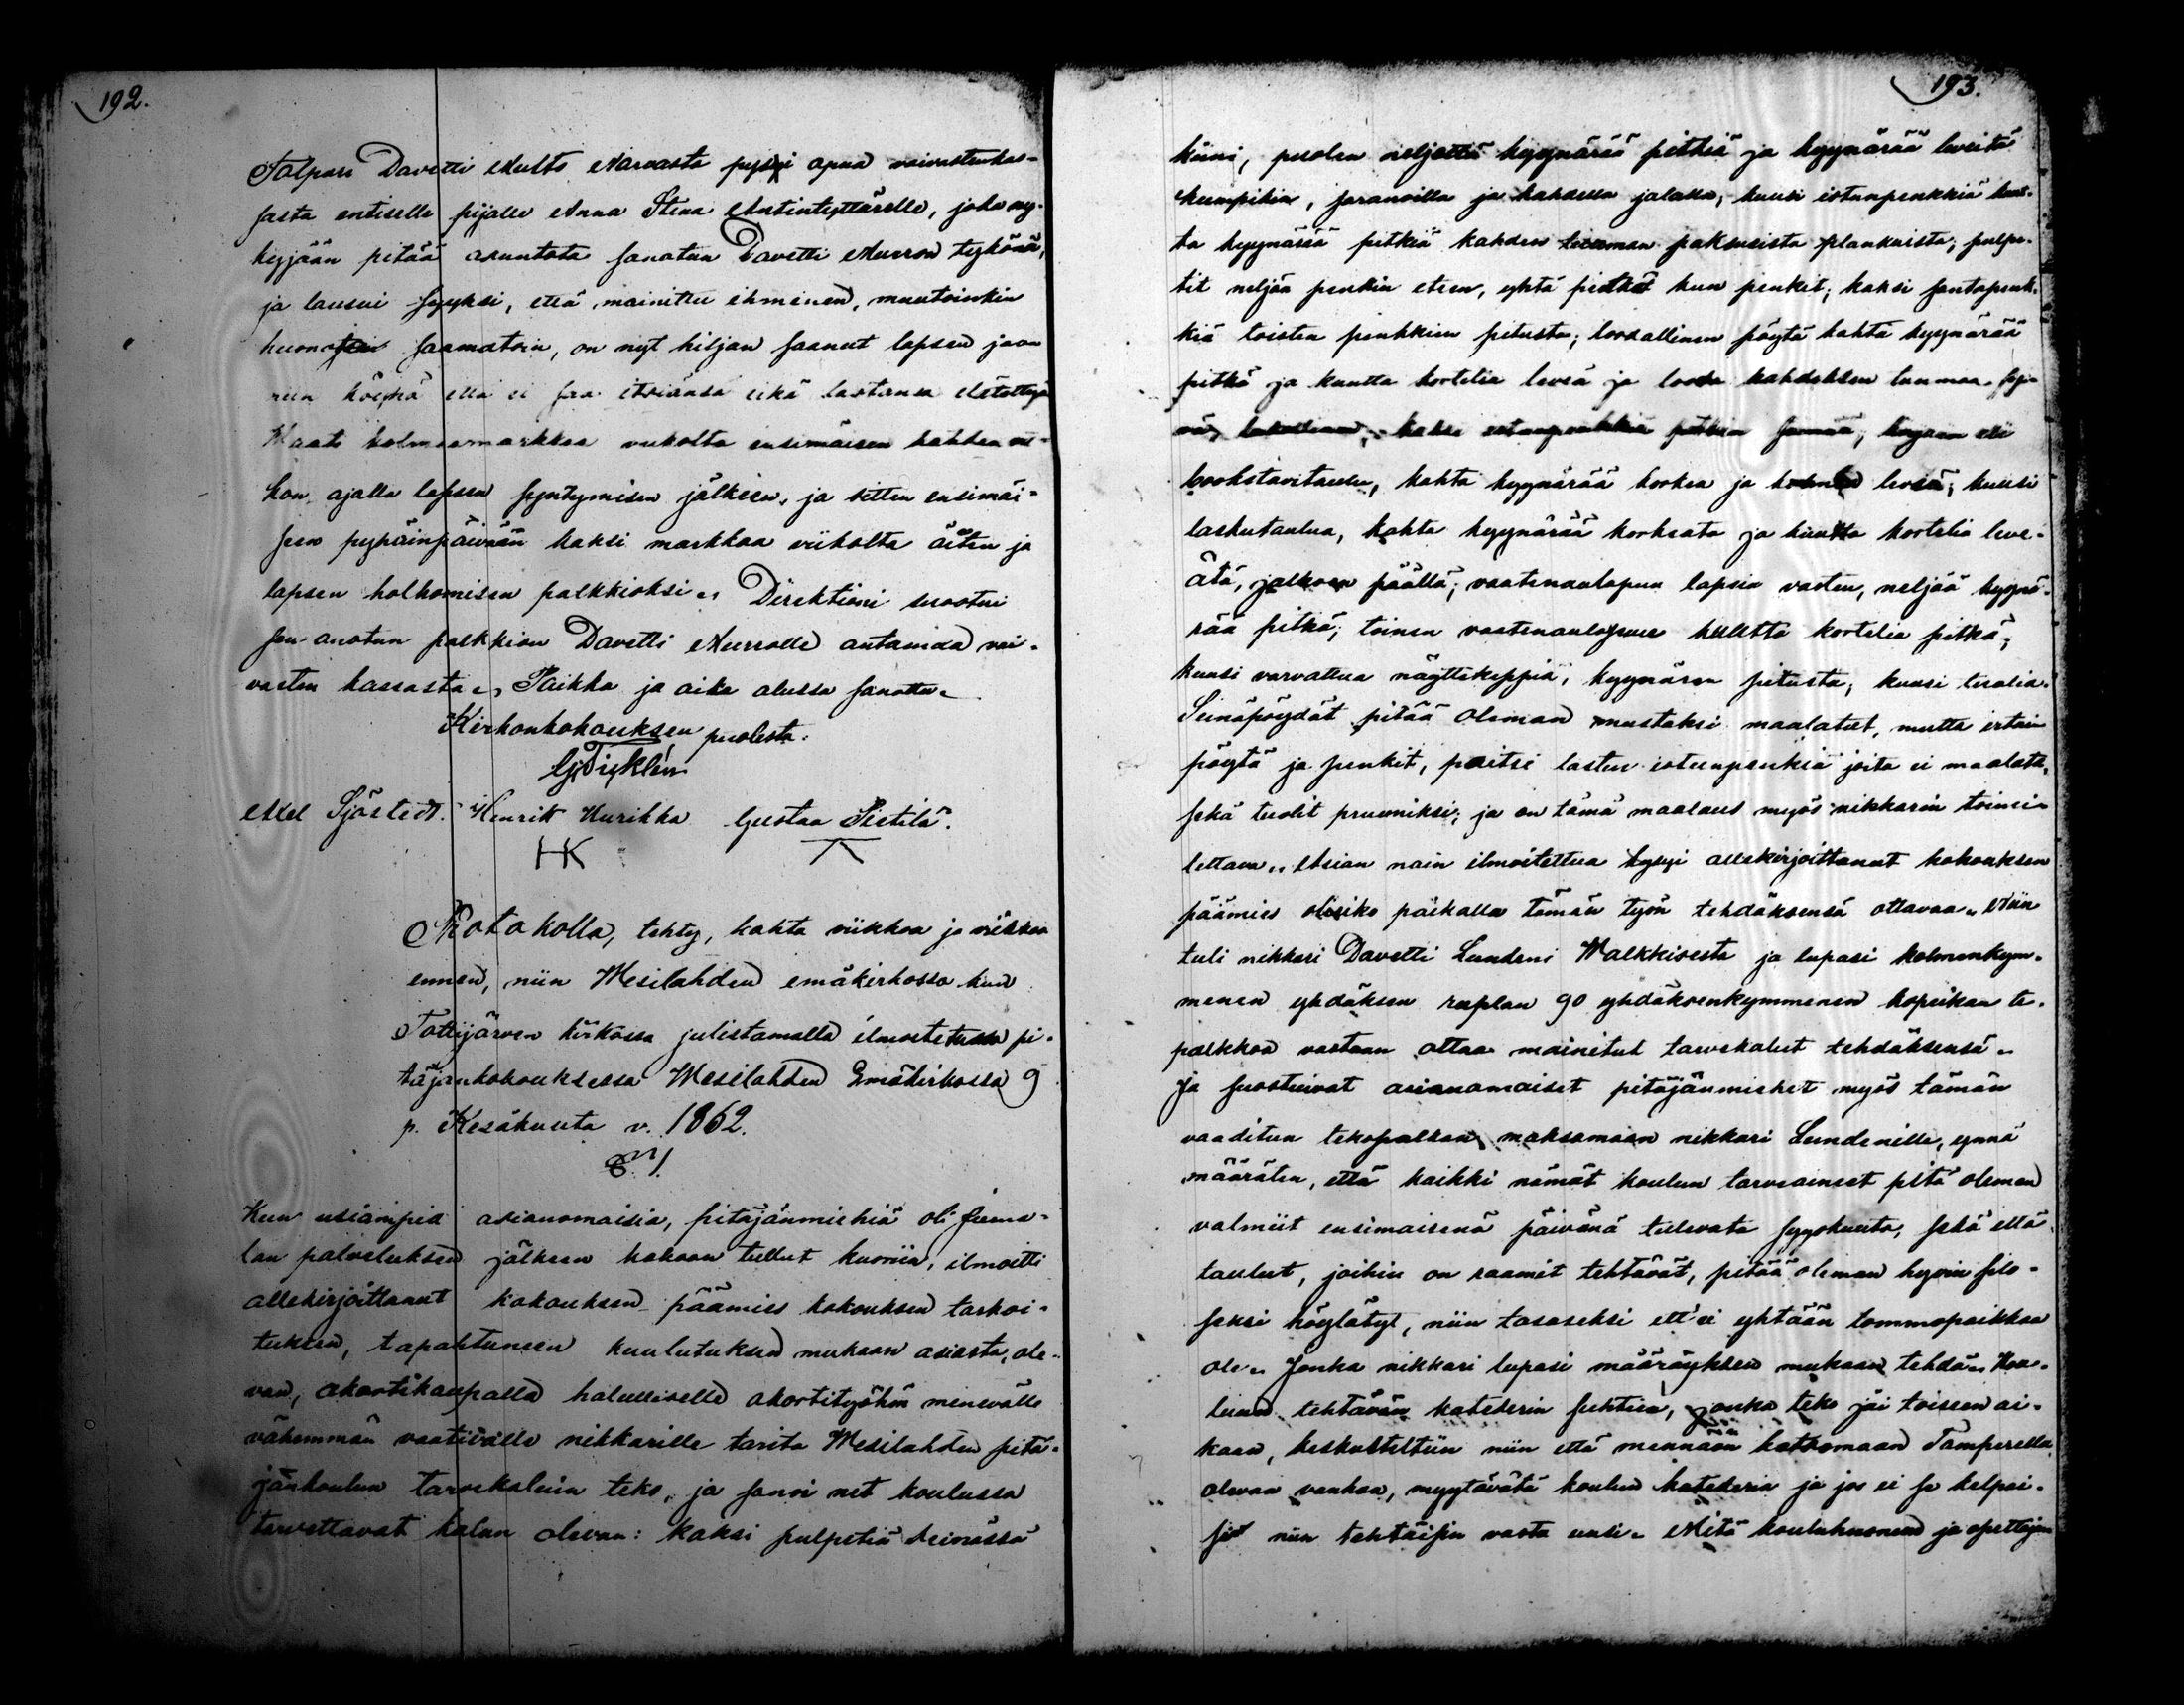 192.
Talpari Davetti Aulto Narvasta pyysi apua vaivastenkas-
sasta entiselle pijalle Anna Stina Antintyttärelle, joka ny-
kyjään pitää asuntota sanotun Davetti Aurron tykönä,
ja lausui syyksi, että mainittu ihminen, muutoinkin
saamatoin, on nyt hiljan saanut lapsen ja on
niin köyhä että ei saa itsiänsä eikä lastansa elätettyä
Waati kolmea markkaa viikolta ensimäisen kahden vii-
kon ajalla lapsen syntymisen jälkeen, ja sitten ensimäi-
seen pyhäinpäivään kaksi markkaa viikolta äitin ja
lapsen holhomisen palkkioksi. Direktioni suostui
sen anotun palkkion Davetti Aurrolle antamaa vai-
vasten kassasta. Paikka ja aika alussa sanottu.
Kirkonkokouksen puolesta:
Gj Ticklén
Axel Sjöstedt. Henrik Kurikka Gustaa Pietilä.
HK
Protokolla, tehty, kahta viikkoa ja viikkoa
ennen, niin Wesilahden emäkirkossa kuin
Tottijärven kirkossa julistamalla ilmoitetussa pi-
täjänkokouksessa Wesilahden Emäkirkossa 9
p. Kesäkuuta v. 1862.
§. 1.
Kun usiampia asianomaisia, pitäjänmiehiä oli Juma-
lan palveluksen jälkeen kokoon tullut kuoriin, ilmoitti
allekirjoittanut kokouksen päämies kokouksen tarkoi-
tuksen, tapahtuneen kuulutuksen mukaan asiasta, ole-
van, akortikaupalla halulliselle akortityöhön menevälle
vähemmän vaativalle nikkarille tarita Wesilahden pitä-
jänkoulun tarvekaluin teko, ja sanoi net koulussa
tarvettavat kalun olevan: kaksi pulpetia seinässä
193.
kiini, puolen neljättä kyynärää pitkiä ja kyynärää leveitä
kumpikin, saranoilla ja kahdella jalalla, kuusi istuinpenkkiä kuut-
ta kyynärää pitkiä kahden tuuman paksusista plankuista; pulpe-
tit neljän penkin eteen, yhtä pitkät kun penkit; kaksi santapenk-
kiä toisten penkkien pitusta; loodallinen pöytä kahta kyynärää
pitkä ja kuutta kortelia leveä ja looda kahdeksan tuumaa sy-
vä, kaksi pitkiä
bookstavitaulu, kahta kyynärää korkea ja leveä; kuusi
laskutaulua, kahta kyynärää korkeata ja kuutta kortelia leve-
ätä, jalkoen päällä; vaatenaulapuu lapsia vasten, neljää kyynä-
rää pitkä; toinen vaatenaulapuu kuutta kortelia pitkä;
kuusi varvattua näyttekeppiä, kyynärän pitusta, kuusi tuolia.
Seinäpöydät pitää oleman mustaksi maalatut, mutta irtain
pöytä ja penkit, paitsi lasten istuinpenkiä joita ei maalata,
sekä tuolit pruuniksi; ja on tämä maalaus myös nikkarin toimi-
tettava. Asian näin ilmoitettua kysyi allekirjoittanut kokouksen
päämies olisiko paikalla tämän työn tehdäksensä ottavaa. Niin
tuli nikkari Davetti Lundeni Walkkisesta ja lupasi kolmenkym-
menen yhdäksen ruplan 90 yhdäksenkymmenen kopeikan te-
palkkaa vastaan ottaa mainitut tarvekalut tehdäksensä.
Ja suostuivat asianomaiset pitäjänmiehet myös tämän
vaaditun tekopalkan maksamaan nikkari Lundenille, ynnä
määräten, että kaikki nämät koulun tarveainet pitä oleman
valmiit ensimaisenä päivänä tulevata syyskuuta, sekä että
taulut, joihin on raamit tehtävät, pitää oleman hyvin silo-
seksi höylätyt, niin tasaseksi ett'ei yhtään tommopaikkaa
ole. Jonka nikkari lupasi määräyksen mukaan tehdä. Kou-
luun tehtävän katederin suhteen, jonka teko jäi toiseen ai-
kaan, keskusteltiin niin että mennään katsomaan Tamperella
olevaa vanhaa, myytävätä koulun katederia ja jos ei se kelpai-
si niin tehtäisiin vasta uusi. Mitä kouluhuoneen ja opettajan